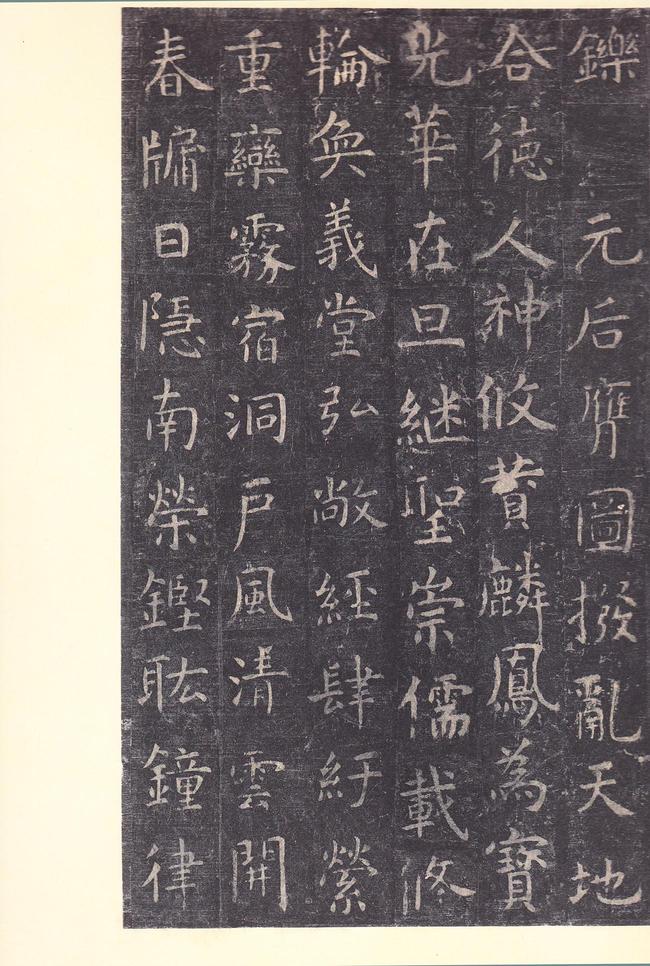 鑠 元后膺圖撥亂天地
合德人神攸贊麟鳳為寶
光華在旦継聖崇儒載修
輪奐義堂弘敞經肆紆縈
重欒霧宿洞戶風清雲開
春牖日隱南榮鏗耾鐘律